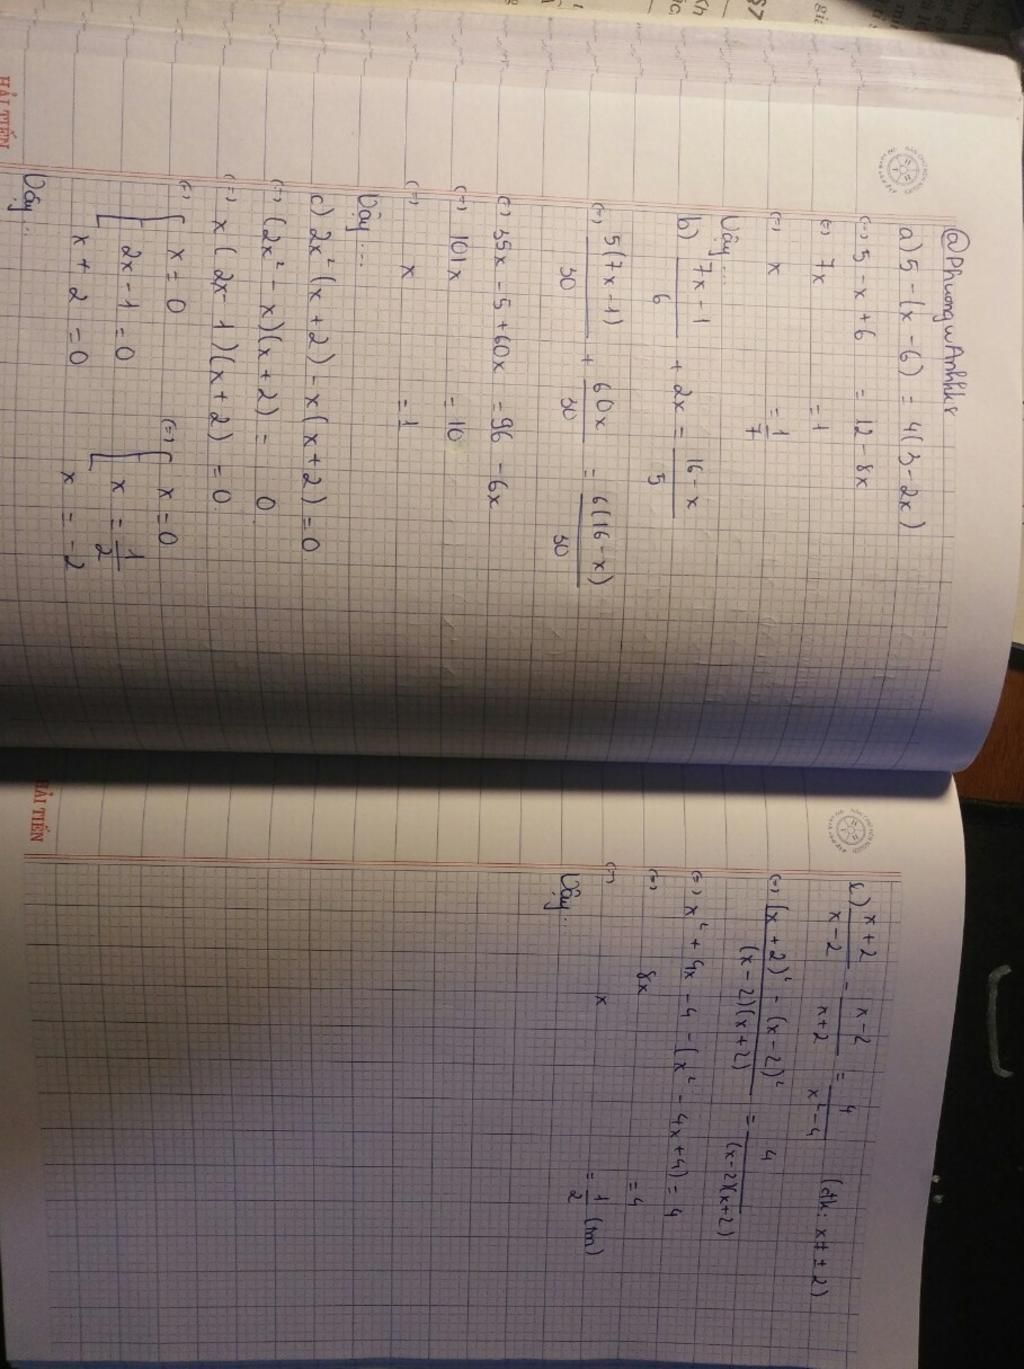 @PhuongwAnhhhs
a) 5 - (x - 6) = 4(3 - 2x)
(=) 5 - x + 6 = 12 - 8x
(=) 7x = 1
(=) x = 1/7
Vậy...
b) (7x - 1)/6 + 2x = (16 - x)/5
(=) 5(7x - 1)/30 + 60x/30 = 6(16 - x)/30
(=) 35x - 5 + 60x = 96 - 6x
(=) 101x = 10
(=) x = 1
Vậy...
c) 2x²(x + 2) - x(x + 2) = 0
(=) (2x² - x)(x + 2) = 0
(=) x(2x - 1)(x + 2) = 0
(=) [ x = 0 (=) [ x = 0
2x - 1 = 0 x = 1/2
x + 2 = 0 x = -2
Vậy...
HẢI TIẾN
(x + 2)/(x - 2) - (x - 2)/(x + 2) = 4/(x² - 4) (đk: x ≠ ± 2)
(=) ((x + 2)² - (x - 2)²)/((x - 2)(x + 2)) = 4/((x - 2)(x + 2))
(=) x² + 4x - 4 - (x² - 4x + 4) = 4
(=) 8x = 4
(=) x = 1/2 (tm)
Vậy...
HẢI TIẾN